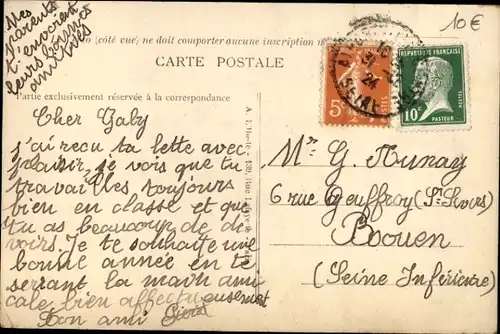 Mes
Parents
t'envoient
leurs bonnes
amitiés
10€
(côté vue) ne doit comporter aucune inscription
CARTE POSTALE
Partie exclusivement réservée à la correspondance
Cher Gaby
j'ai recu ta lette avec
plaisir, je vois que tu
travailles toujours
bien en classe et que
tu as beaucoup de de
voirs. Je te souhaite une
bonne année en te
serrant la main ami
cale bien affectueusement
Ton ami
5c
RÉPUBLIQUE FRANÇAISE
10c
PASTEUR
Mr G. Aunay
6 rue Geuffroy (St Severs)
Roouen
(Seine Inférieure)